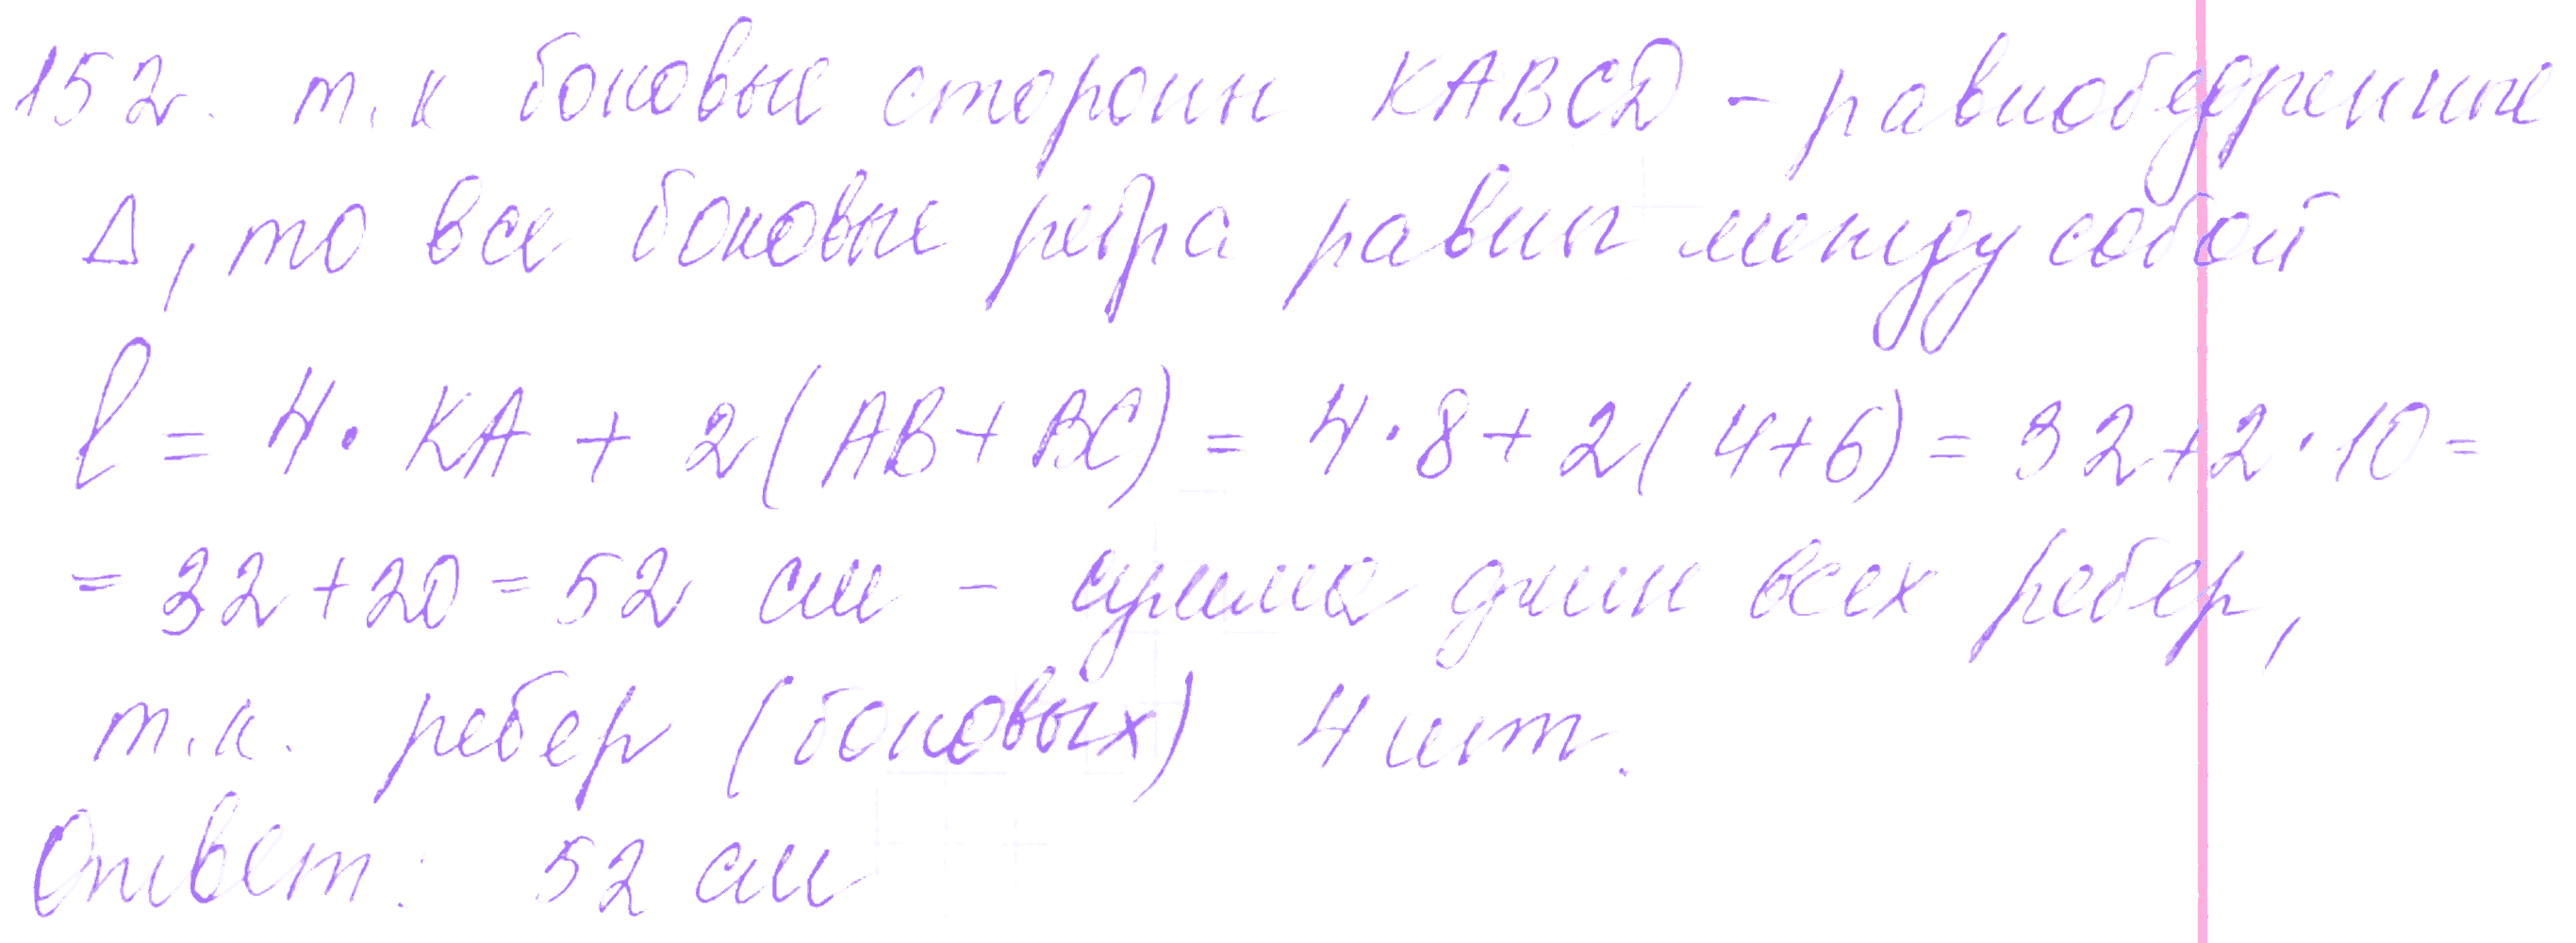 152. т.к боковые стороны KABCD - равнобедренные
Δ, то все боковые ребра равны между собой
l = 4 · KA + 2(AB + BC) = 4 · 8 + 2(4+6) = 32+2·10=
= 32+20=52 см - сумма длин всех ребер,
т.к. ребер (боковых) 4 шт.
Ответ: 52 см